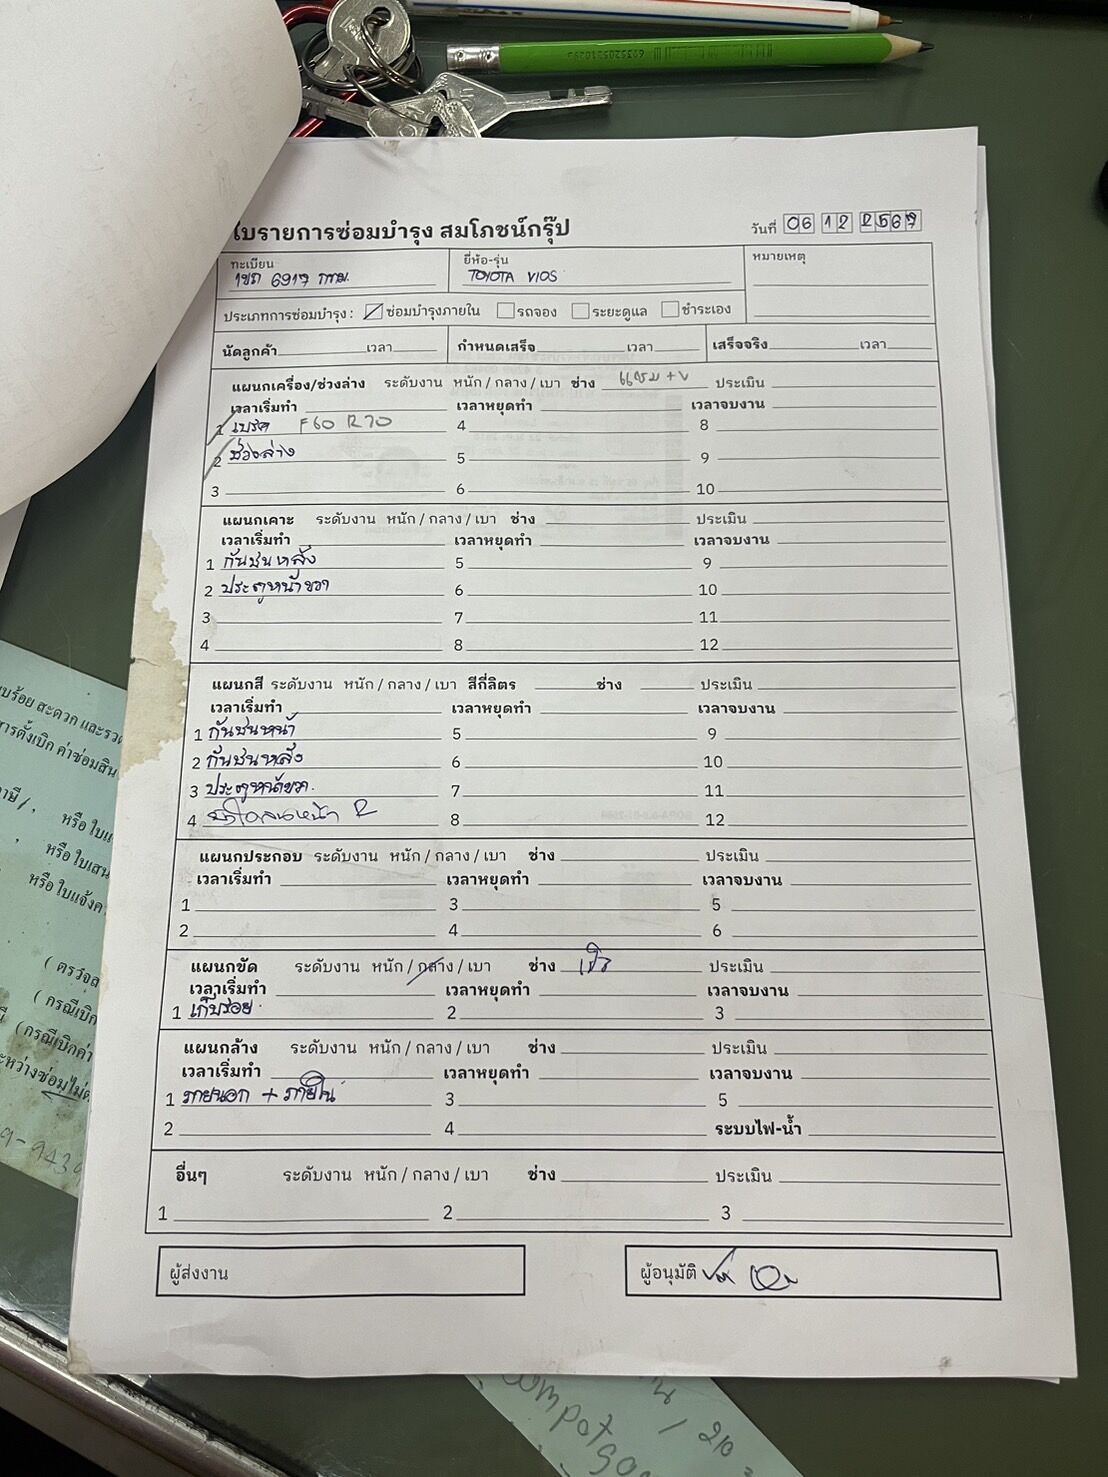 6935205310293
ใบรายการซ่อมบำรุง สมโภชน์กรุ๊ป
วันที่ 06 12 2567
ทะเบียน
6917 กทม.
ยี่ห้อ-รุ่น
TOYOTA VIOS
หมายเหตุ
ประเภทการซ่อมบำรุง : ซ่อมบำรุงภายใน รถจอง ระยะดูแล ชำระเอง
นัดลูกค้า เวลา กำหนดเสร็จ เวลา เสร็จจริง เวลา
แผนกเครื่อง/ช่วงล่าง ระดับงาน หนัก / กลาง / เบา ช่าง แชม + V ประเมิน
เวลาเริ่มทำ เวลาหยุดทำ เวลาจบงาน
1 เบรค F60 R70 4 8
2 ช่วงล่าง 5 9
3 6 10
แผนกเคาะ ระดับงาน หนัก / กลาง / เบา ช่าง ประเมิน
เวลาเริ่มทำ เวลาหยุดทำ เวลาจบงาน
1 กันชนหลัง 5 9
2 ประตูหน้าขวา 6 10
3 7 11
4 8 12
แผนกสี ระดับงาน หนัก / กลาง / เบา สีกี่ลิตร ช่าง ประเมิน
เวลาเริ่มทำ เวลาหยุดทำ เวลาจบงาน
1 กันชนหน้า 5 9
2 กันชนหลัง 6 10
3 ประตูหน้าขวา. 7 11
4 R 8 12
แผนกประกอบ ระดับงาน หนัก / กลาง / เบา ช่าง ประเมิน
เวลาเริ่มทำ เวลาหยุดทำ เวลาจบงาน
1 3 5
2 4 6
แผนกขัด ระดับงาน หนัก / กลาง / เบา ช่าง ประเมิน
เวลาเริ่มทำ เวลาหยุดทำ เวลาจบงาน
1 เก็บรอย. 2 3
แผนกล้าง ระดับงาน หนัก / กลาง / เบา ช่าง ประเมิน
เวลาเริ่มทำ เวลาหยุดทำ เวลาจบงาน
1 ภายนอก + ภายใน 3 5
2 4 ระบบไฟ-น้ำ
อื่นๆ ระดับงาน หนัก / กลาง / เบา ช่าง ประเมิน
1 2 3
ผู้ส่งงาน
ผู้อนุมัติ
บร้อย สะดวก และรวด
ารตั้งเบิก ค่าซ่อมสิน
หรือ ใบแ
หรือ ใบเสน
หรือ ใบแจ้งค
( ตรวจส
( กรณีเบิก
( กรณีเบิกค่า
ะหว่างซ่อมไม่
9-943